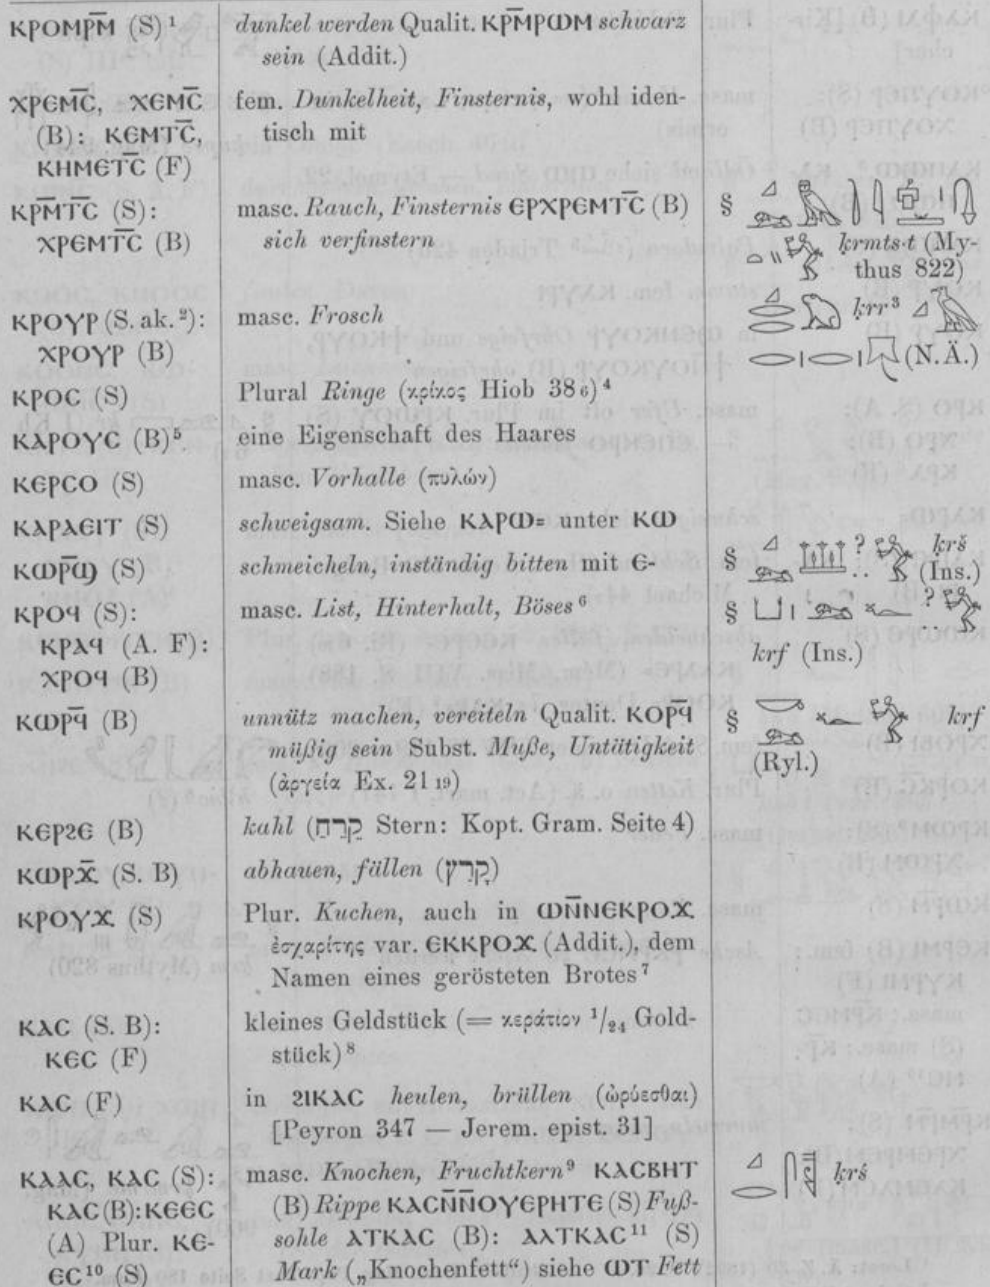 ⲕⲣⲟⲙⲣⲙ̅ (S) ¹ dunkel werden Qualit. ⲕⲣⲙ̅ⲣⲱⲙ schwarz
sein (Addit.)
ⲭⲣⲉⲙⲥ̅, ⲭⲉⲙⲥ̅ fem. Dunkelheit, Finsternis, wohl iden-
(B): ⲕⲉⲙⲧⲥ̅, tisch mit
ⲕⲏⲙⲉⲧⲥ̅ (F)
ⲕⲣⲙ̅ⲧⲥ̅ (S): masc. Rauch, Finsternis ⲉⲣⲭⲣⲉⲙⲧⲥ̅ (B) §
ⲭⲣⲉⲙⲧⲥ̅ (B) sich verfinstern ḳrmts·t (My-
thus 822)
ⲕⲣⲟⲩⲣ (S. ak. ²): masc. Frosch ḳrr ³
ⲭⲣⲟⲩⲣ (B) (N. Ä.)
ⲕⲣⲟⲥ (S) Plural Ringe (κρίκος Hiob 38 6) ⁴
ⲕⲁⲣⲟⲩⲥ (B) ⁵ eine Eigenschaft des Haares
ⲕⲉⲣⲥⲟ (S) masc. Vorhalle (πυλών)
ⲕⲁⲣⲁⲉⲓⲧ (S) schweigsam. Siehe ⲕⲁⲣⲱ= unter ⲕⲱ
ⲕⲱⲣϣ̅ (S) schmeicheln, inständig bitten mit ⲉ- § ? ḳrš
(Ins.)
ⲕⲣⲟϥ (S): masc. List, Hinterhalt, Böses ⁶ § ?
ⲕⲣⲁϥ (A. F): krf (Ins.)
ⲭⲣⲟϥ (B)
ⲕⲱⲣϥ̅ (B) unnütz machen, vereiteln Qualit. ⲕⲟⲣϥ̅ § krf
müßig sein Subst. Muße, Untätigkeit (Ryl.)
(ἀργεία Ex. 21 19)
ⲕⲉⲣϩⲉ (B) kahl (קֵרֵחַ Stern: Kopt. Gram. Seite 4)
ⲕⲱⲣϫ̅ (S. B) abhauen, fällen (קָרַץ)
ⲕⲣⲟⲩϫ (S) Plur. Kuchen, auch in ⲱⲛ̅ⲛⲉⲕⲣⲟϫ
ἐσχαρίτης var. ⲉⲕⲕⲣⲟϫ (Addit.), dem
Namen eines gerösteten Brotes ⁷
ⲕⲁⲥ (S. B): kleines Geldstück (= κεράτιον ¹/₂₄ Gold-
ⲕⲉⲥ (F) stück) ⁸
ⲕⲁⲥ (F) in ϩⲓⲕⲁⲥ heulen, brüllen (ὠρύεσθαι)
[Peyron 347 — Jerem. epist. 31]
ⲕⲁⲁⲥ, ⲕⲁⲥ (S): masc. Knochen, Fruchtkern ⁹ ⲕⲁⲥⲃⲏⲧ ḳrś
ⲕⲁⲥ (B): ⲕⲉⲉⲥ (B) Rippe ⲕⲁⲥⲛ̅ⲛ̅ⲟⲩⲉⲣⲏⲧⲉ (S) Fuß-
(A) Plur. ⲕⲉ- sohle ⲁⲧⲕⲁⲥ (B): ⲁⲗⲧⲕⲁⲥ ¹¹ (S)
ⲉⲥ ¹⁰ (S) Mark („Knochenfett“) siehe ⲱⲧ Fett